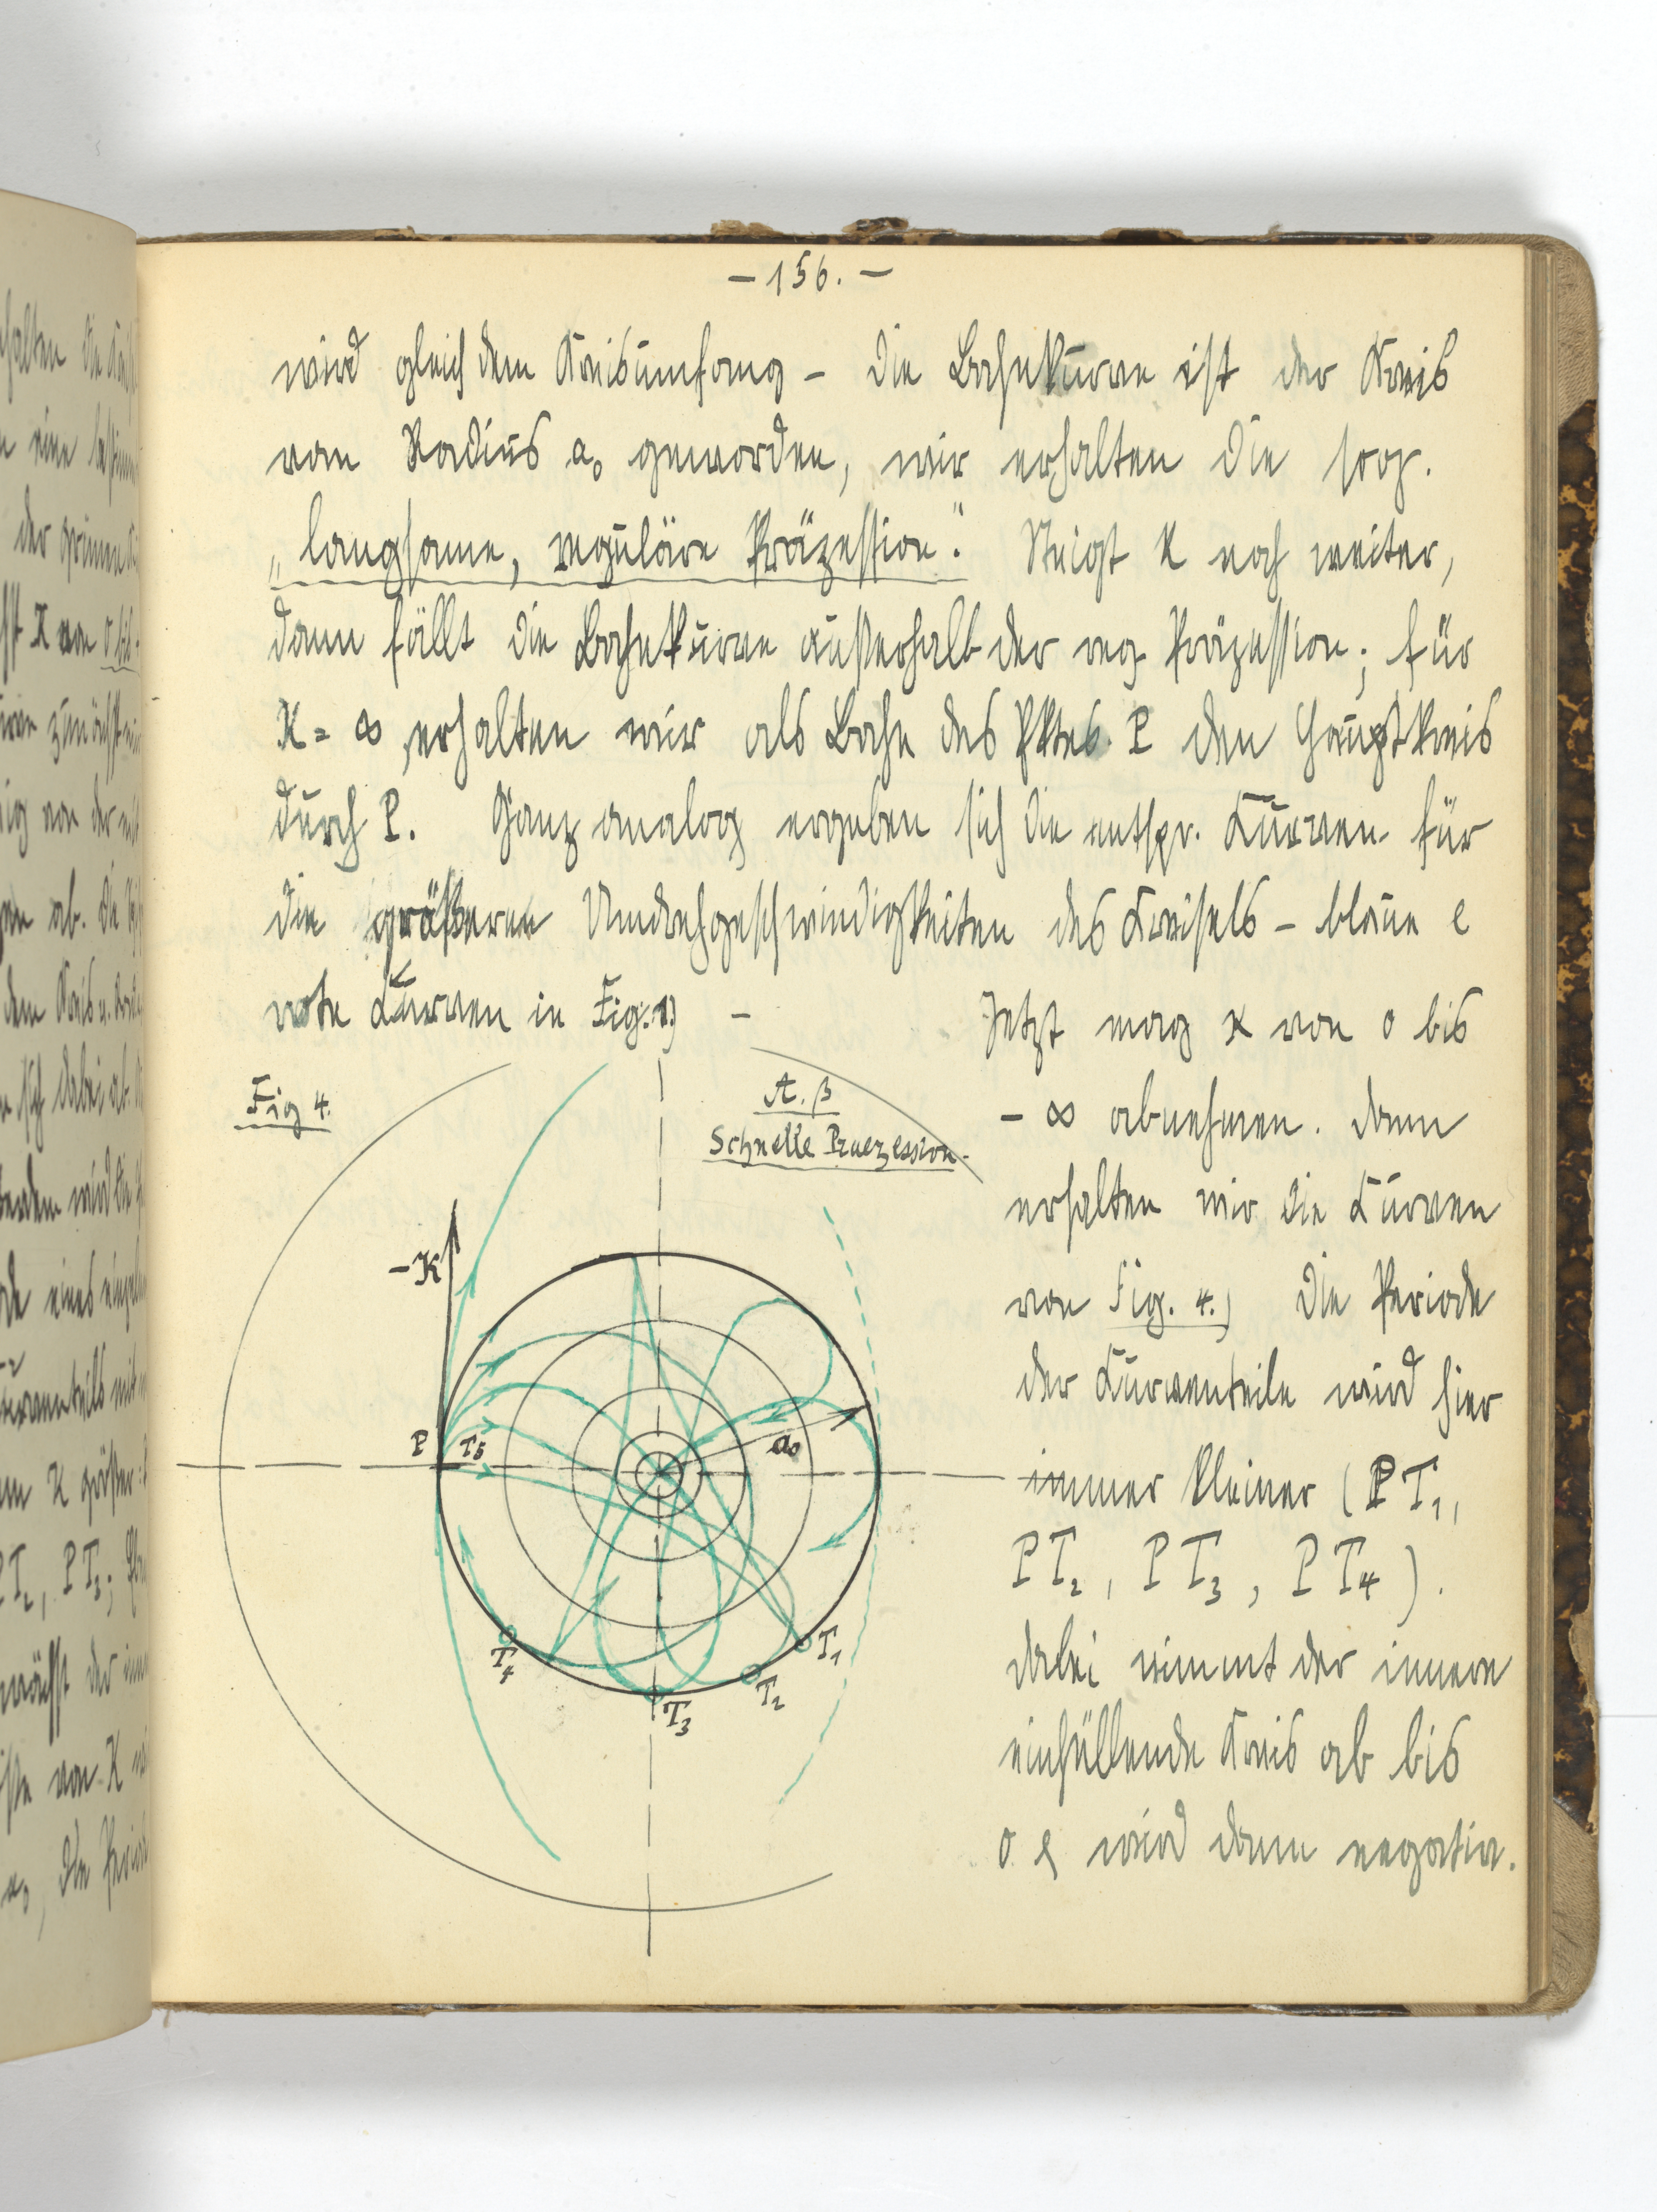 - 156. -
wird gleich dem Kreisumfang - die Bahnkurve ist der Kreis
vom Radius a₀ geworden, wir erhalten die sog.
„langsame, reguläre Präzession." Steigt K noch weiter,
dann fällt die Bahnkurve außerhalb der reg. Präzession; für
K = ∞ erhalten wir als Bahn des Pktes. P den Hauptkreis
durch P. Ganz analog ergeben sich die entspr. Kurven für
die größeren Umdrehgeschwindigkeiten des Kreisels - blaue &
rote Kurven in Fig. 1) -
Jetzt mag K von 0 bis
- ∞ abnehmen. Dann
erhalten wir die Kurven
von Fig. 4.) Die Periode
der Kurventeile wird hier
immer kleiner (PT₁,
PT₂, PT₃, PT₄).
Dabei nimmt der innere
einhüllende Kreis ab bis
0 & wird dann negativ.
Fig 4.
A. β
Schnelle Praezession.
-K
P
T₅
a₀
T₁
T₂
T₃
T₄